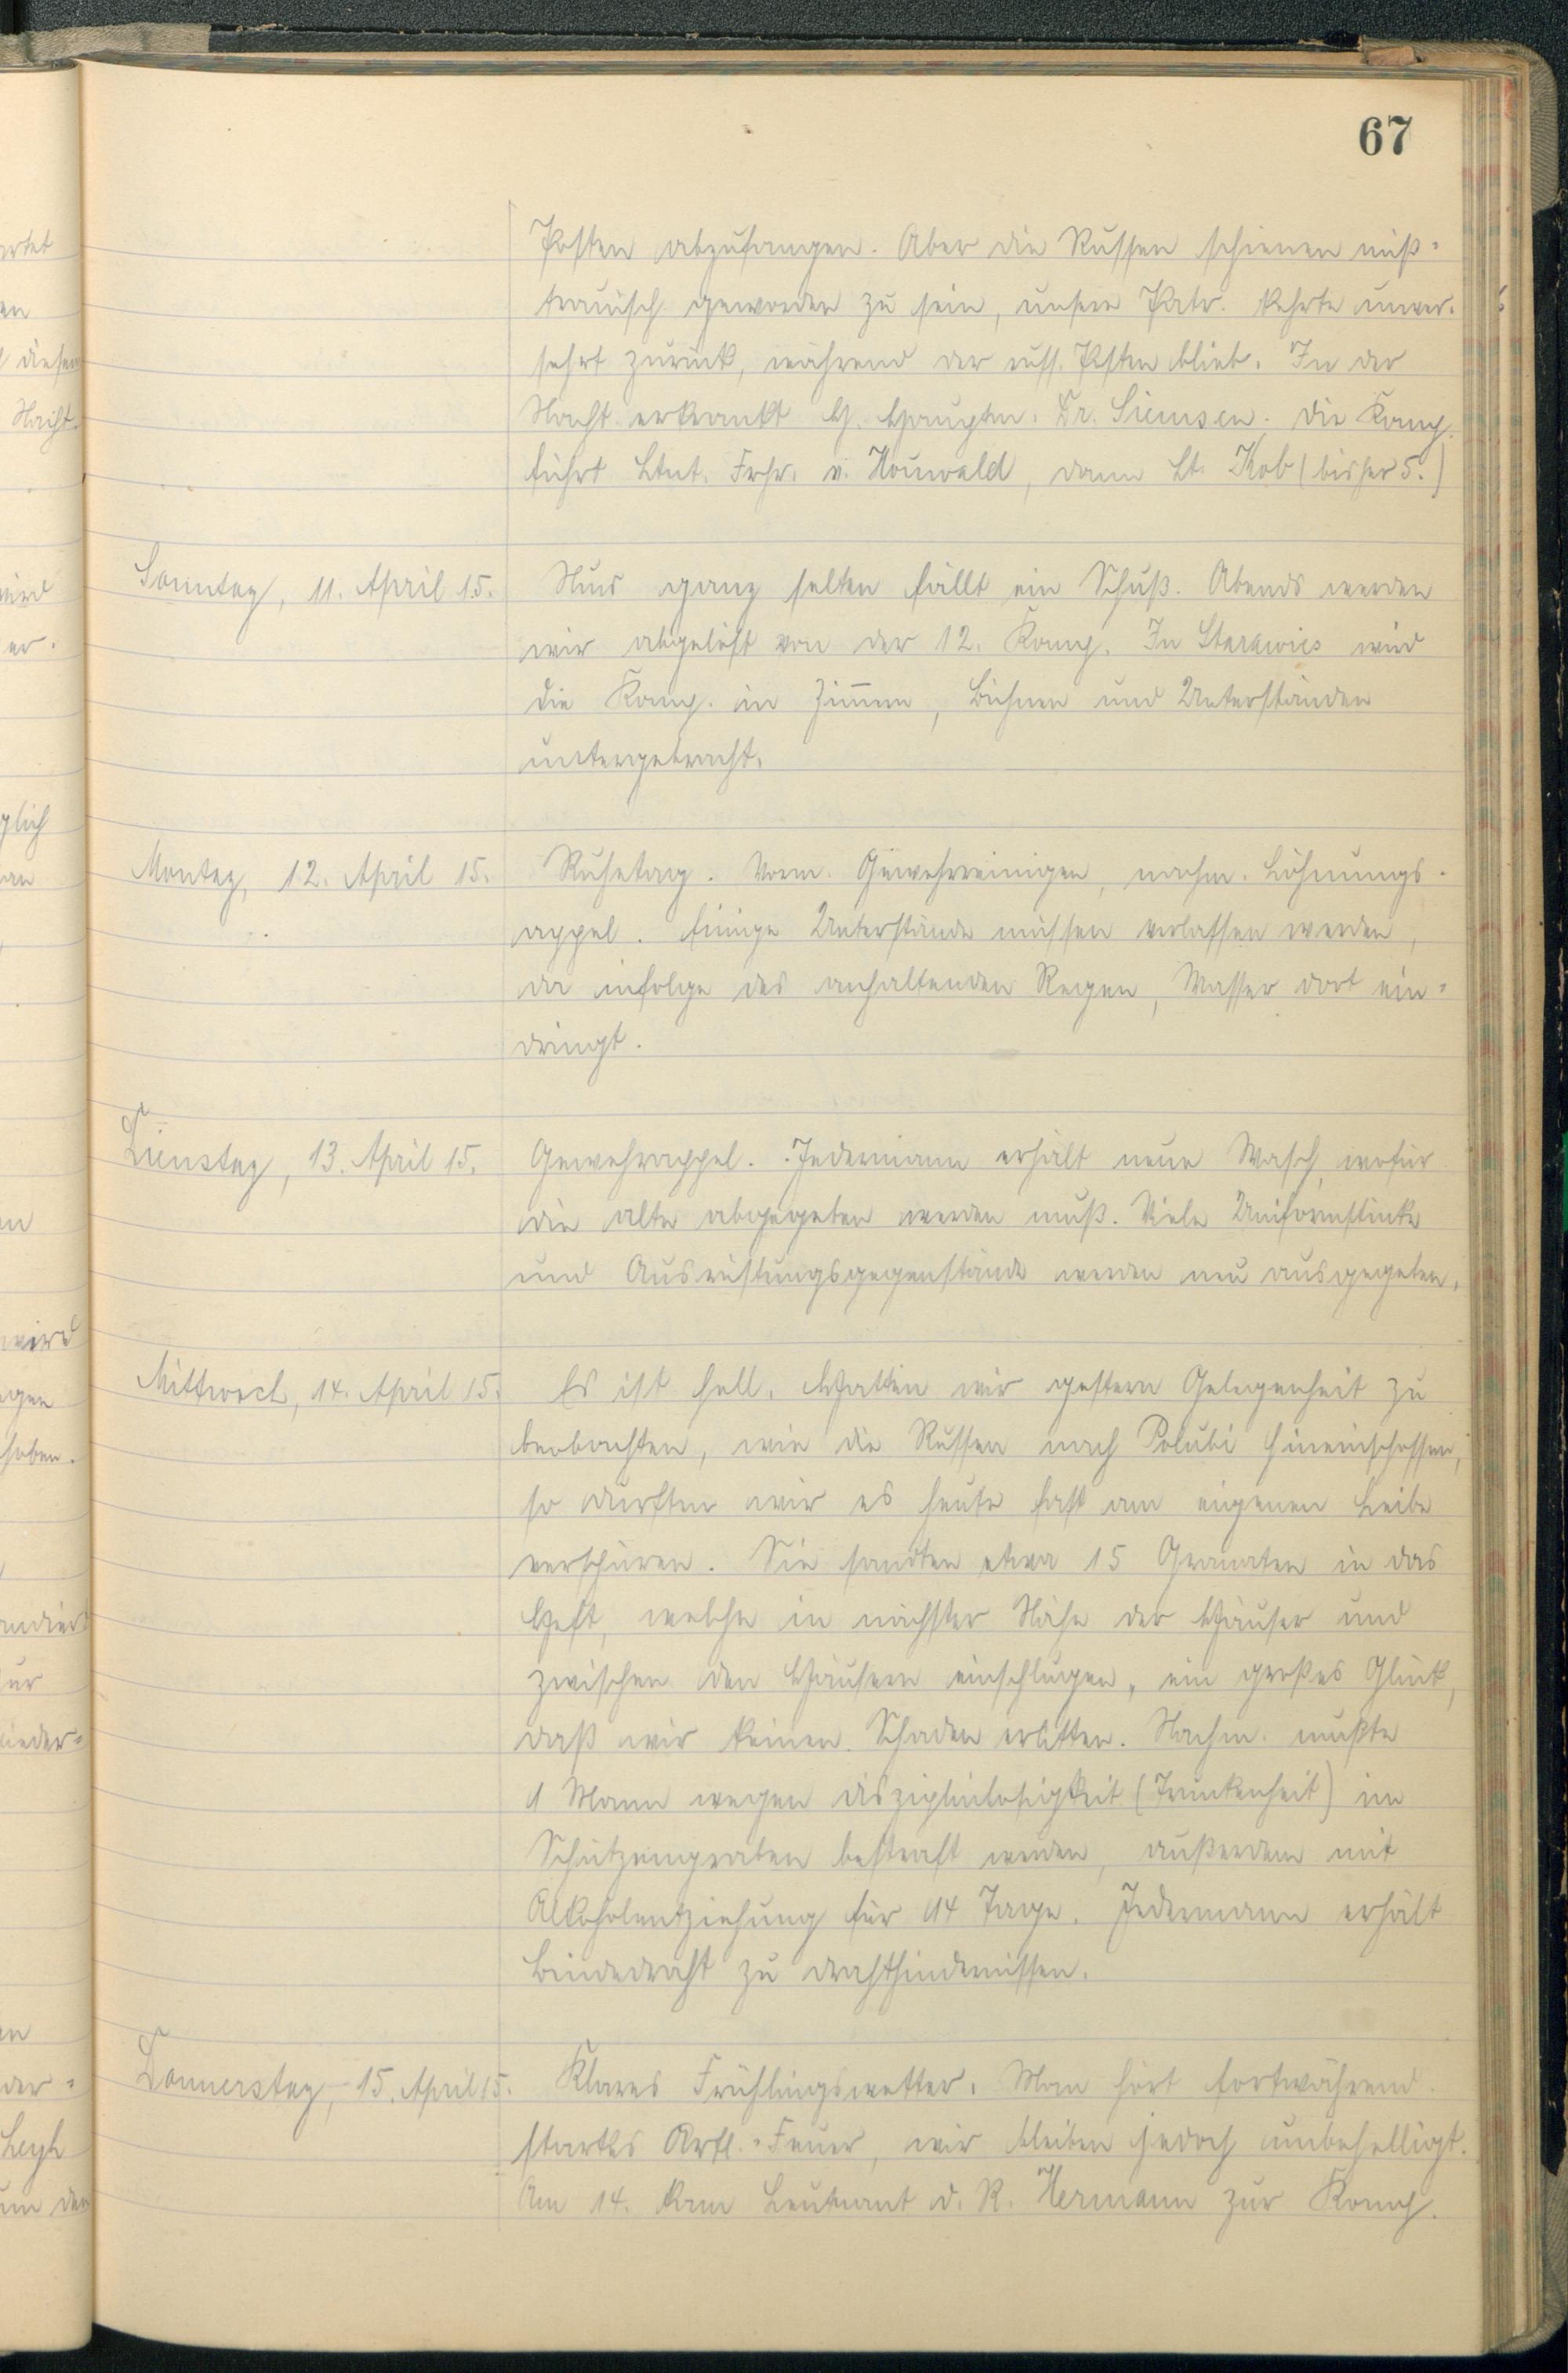 67
Posten abzufangen. Aber die Russen schienen miß-
trauisch geworden zu sein, unsere Patr. kehrte unver-
sehrt zurück, während der russ. Posten blieb. In der
Nacht erkrankt H. Hauptm. Dr. Siemsen. Die Komp.
führt Ltnt. Frhr. v. Houwald, dann Lt. Kob (bisher 5.)
Sonntag, 11. April 15.
Nur ganz selten fällt ein Schuß. Abends werden
wir abgelöst von der 12. Komp. In Starawies wird
die Komp. in Zimmern, Bühnen und Unterständen
untergebracht.
Montag, 12. April 15.
Ruhetag. Vorm. Gewehrreinigen, nachm. Löhnungs-
appel. Einige Unterstände müssen verlassen werden,
da infolge des anhaltenden Regen, Wasser dort ein-
dringt.
Dienstag, 13. April 15.
Gewehrappel. Jedermann erhält neue Wasch, wofür
die alte abgegeben werden muß. Viele Uniformstücke
und Ausrüstungsgegenstände werden neu ausgegeben.
Mittwoch, 14. April 15.
Es ist hell. Hatten wir gestern Gelegenheit zu
beobachten, wie die Russen nach Polubi hineinschossen,
so durften wir es heute fast am eigenen Leibe
verspüren. Sie sandten etwa 15 Granaten in das
Heft, welche in nächster Nähe der Häuser und
zwischen den Häusern einschlugen, ein großes Glück,
daß wir keinen Schaden erlitten. Nachm. mußte
1 Mann wegen disziplinlosigkeit (Trunkenheit) im
Schützengraben bestraft werden, außerdem mit
Alkoholentziehung für 14 Tage. Jedermann erhält
Bindedraht zu drahthindernissen.
Donnerstag, 15. April 15.
Klares Frühlingswetter. Man hört fortwährend
starkes Artl.-Feuer, wir bleiben jedoch unbehelligt.
Am 14. kam Leutnant d. R. Hermann zur Komp.